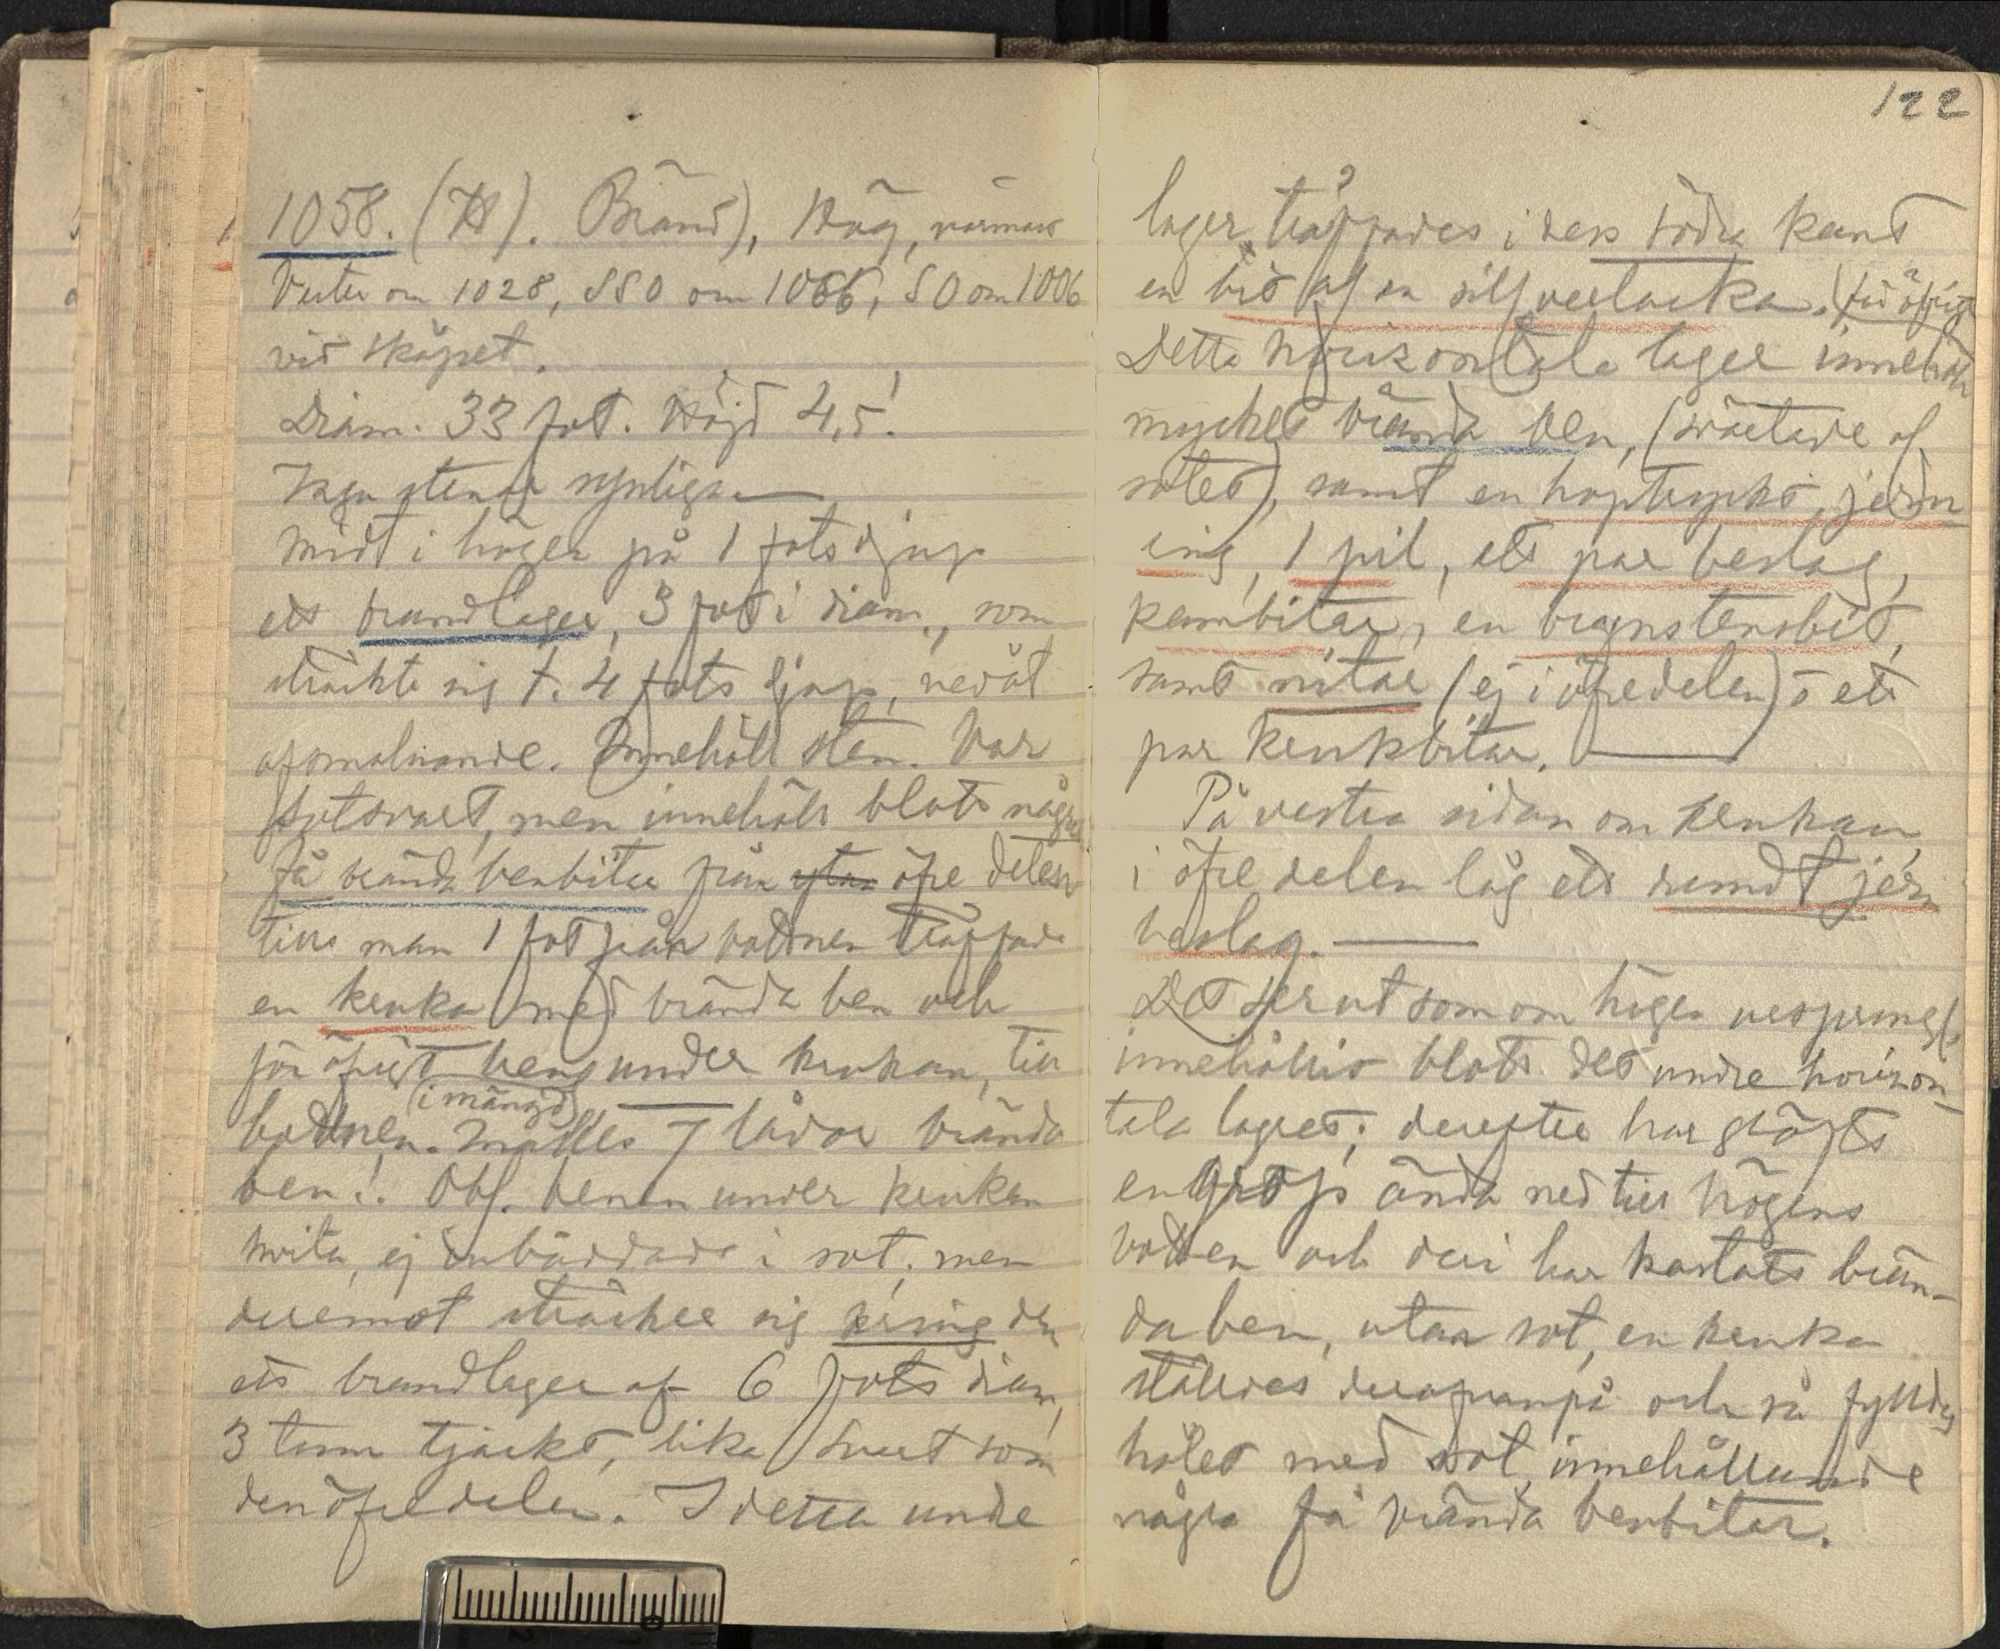 1058. (H). Bränd), Hög, närmast
Vester om 1028, SSO om 1066, SO om 1006
vid skåpet.
Diam. 33 fot. Höjd 4,5'.
Inga stenar synliga
Midt i högen på 1 fots djup
ett brandlager, 3 fot i diam., som
sträckte sig t. 4 fots djup, nedåt
afsmalnande. Innehöll sten. Var
sotsvart, men innehöll blott några
få brända benbitar från ytan öfre delen
tills man 1 fot från bottnen träffade
en kruka med brända ben och
för öfrigt ben under krukan, till
(i mängd)
bottnen. Mättes 7 lådor brända
ben!. Obs. benen under krukan
hvita, ej inbäddade i sot; men
deremot sträcker sig kring den
ett brandlager af 6 fots diam,
3 tum tjockt, lika svart som
den öfre delen. I detta undre
122
lager träffades i dess södra kant
en bit af en silfverlacka. för öfrigt
Detta horizontala lager innehöll
mycket brända ben, (svärtade af
sotet), samt en hoptryckt jern
ring, 1 pil, ett par beslag,
kambitar, en bronstensbit,
samt nitar (ej i öfre delen) o ett
par krukbitar.
På vestra sidan om krukan,
i öfre delen låg ett rundt jern
beslag.
Det ser ut som om högen ursprungl.
innehållit blott det undre horizon
tala lagret; derefter har gräfts
en grop ända ned till högens
botten och deri har kastats brän-
da ben, utan sot, en kruka
ställdes derofvanpå och så fylldes
hålet med sot innehållande
några få brända benbitar.